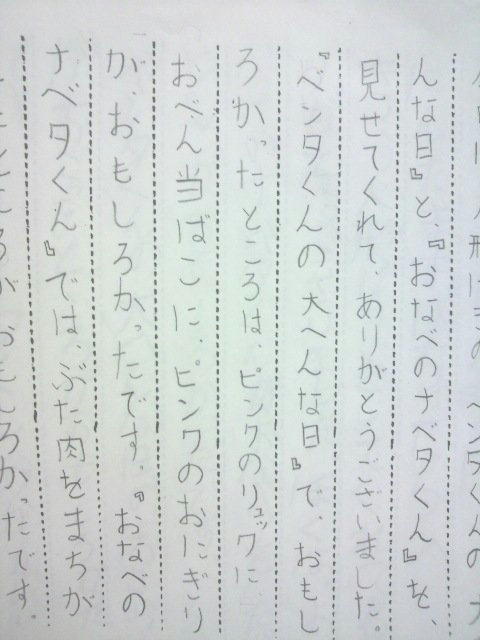 形げきの ベンタくんの
んな日』と、『おなべのナベタくん』を、
見せてくれて、ありがとうございました。
『ベンタくんの大へんな日』で、おもし
ろかったところは、ピンクのリュックに
おべん当ばこに、ピンクのおにぎり
が、おもしろかったです。『おなべの
ナベタくん』では、ぶた肉をまちが
ところが、おもしろかったです。